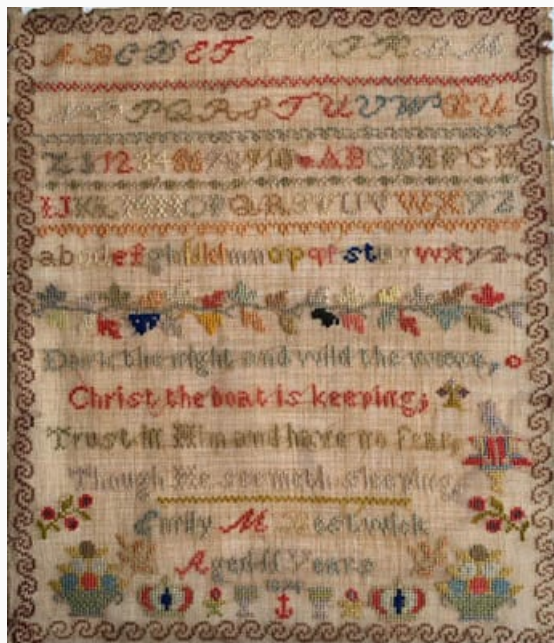 A B C D E F I K L M
N O P Q R S T U V W X Y
Z & 1 2 3 4 5 6 7 8 9 10 A B C D E F G H
I J K L M N O P Q R S T U V W X Y Z
a b c d e f g h i j k l m n o p q r s t u v w x y z
Dark the night and wild the wave,
Christ the boat is keeping;
Trust in Him and have no fear,
Though He seemeth sleeping,
Emily M
Aged 11 Years